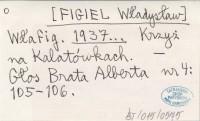 [FIGIEL Władysław]
Wła Fig. 1937... Krzyż
na Kalatówkach. —
Głos Brata Alberta nr 4:
105-106.